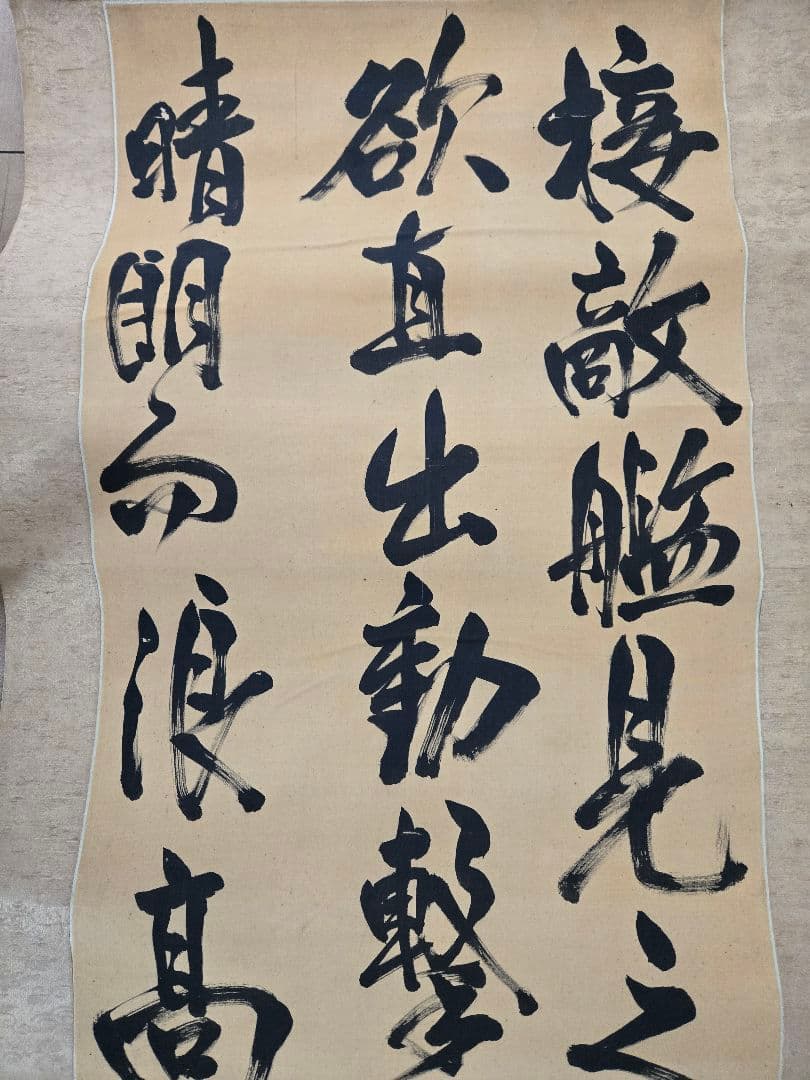 接敵艦見之
欲直出動撃
晴朗而浪高